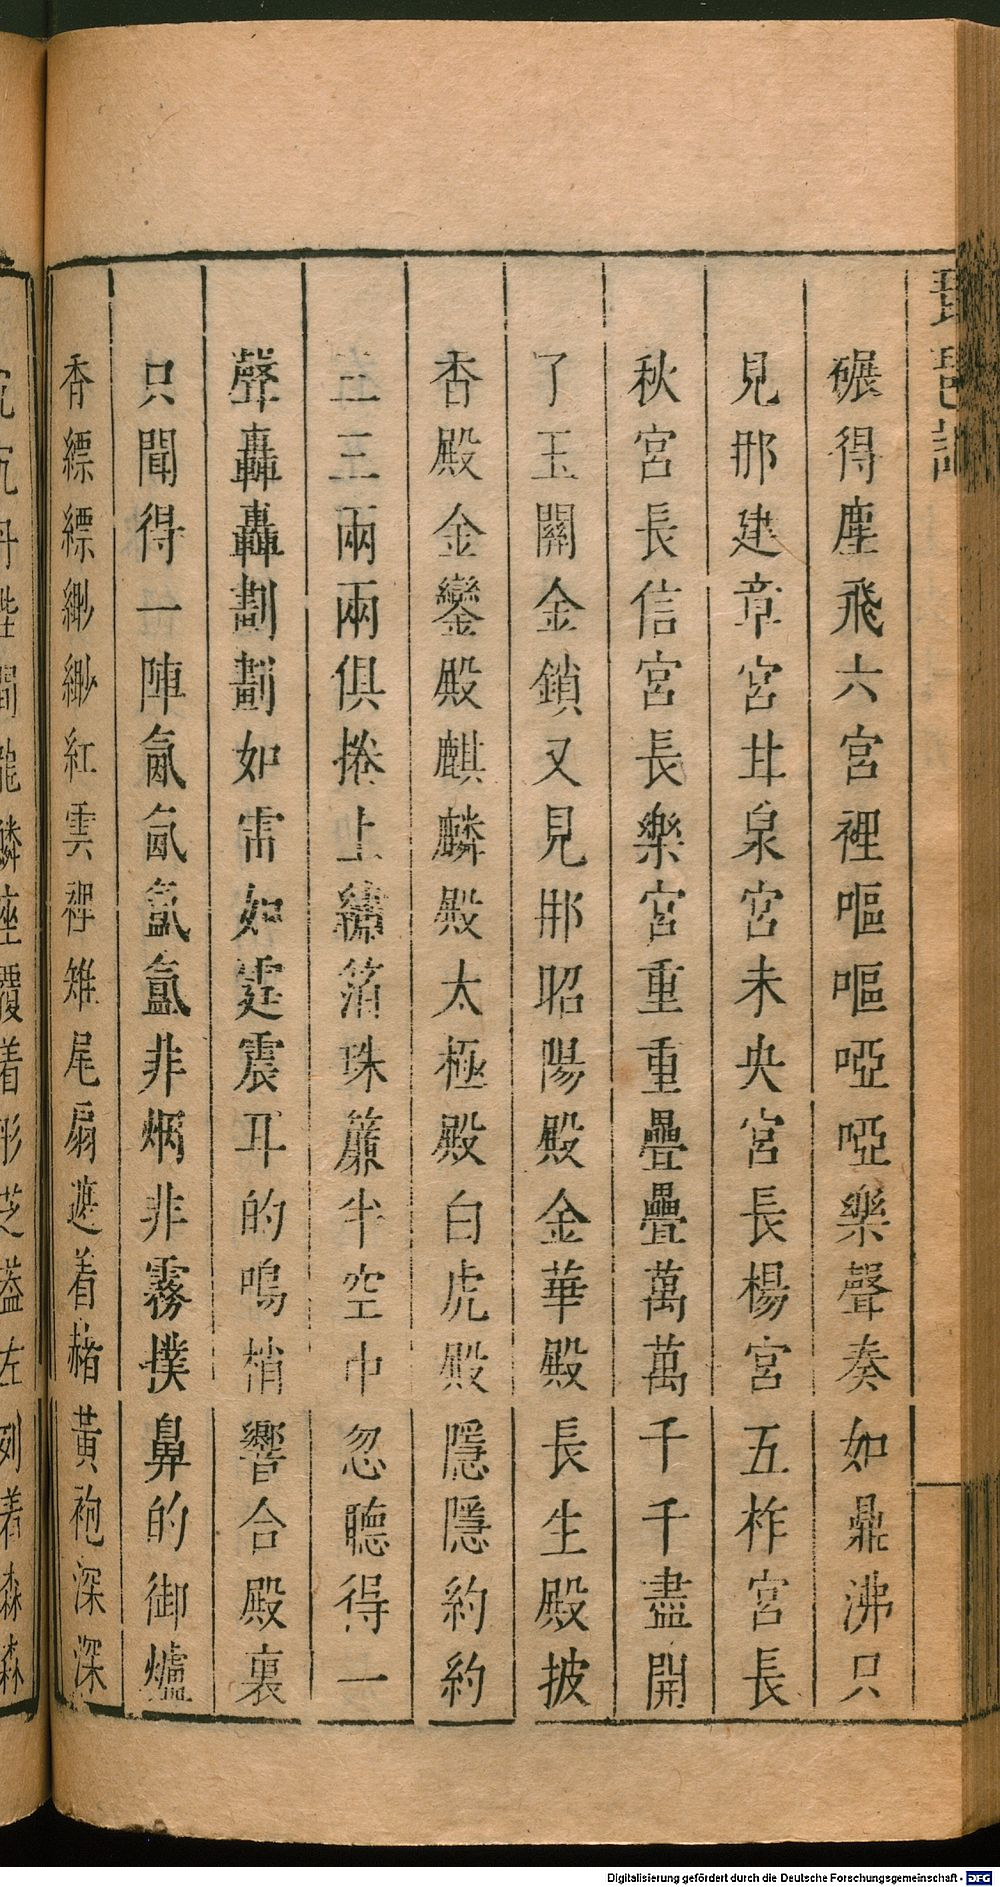 琵琶記
碾得塵飛六宮裡嘔嘔啞啞樂聲奏如鼎沸只
見那建章宮甘泉宮未央宮長楊宮五柞宮長
秋宮長信宮長樂宮重重疊疊萬萬千千盡開
了玉關金鎖又見那昭陽殿金華殿長生殿披
香殿金鑾殿麒麟殿太極殿白虎殿隱隱約約
三三兩兩俱捲上繡箔珠簾半空中忽聽得一
聲轟轟劃劃如雷如霆震耳的鳴梢響合殿裏
只聞得一陣氤氤氳氳非烟非霧撲鼻的御爐
香縹縹緲緲紅雲裡雉尾扇遮着赭黃袍深深
沉沉丹陛間龍鱗座覆着彤芝蓋左列着森森
Digitalisierung gefördert durch die Deutsche Forschungsgemeinschaft - DFG